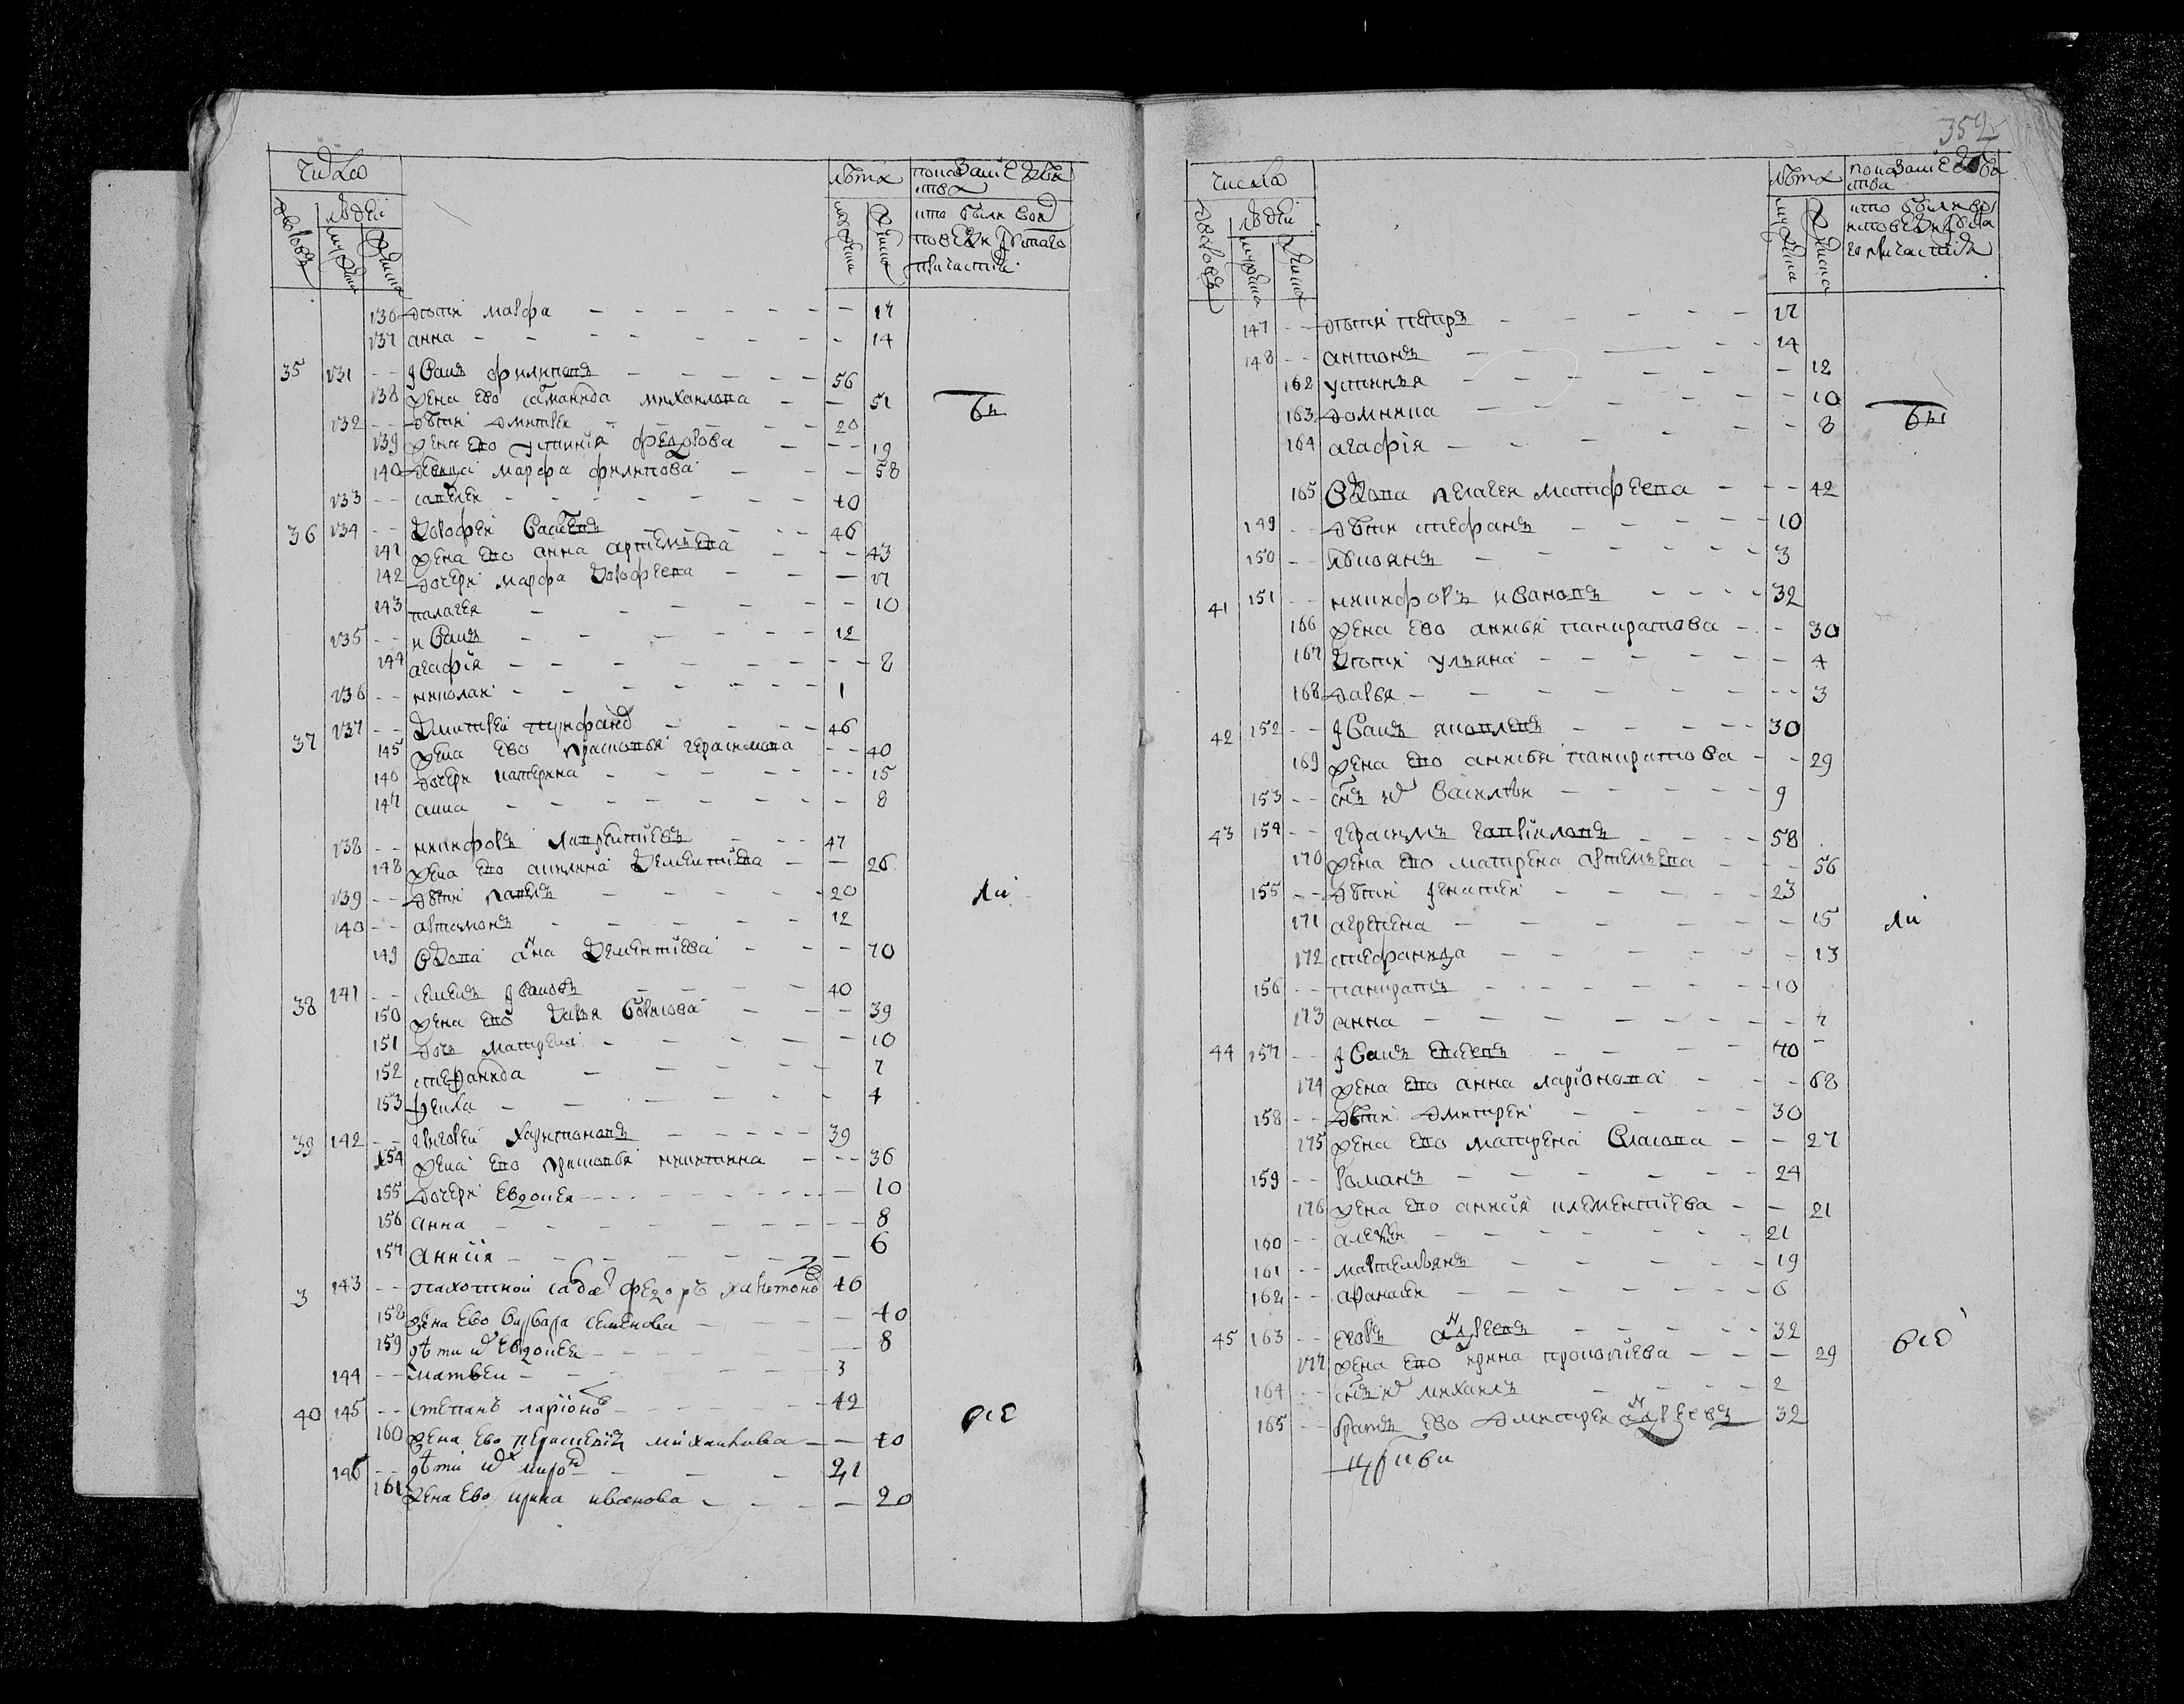 число
лѣта
показание действа
дворовъ
людей
мужеска
женска
мужеска
женска
кто были во и
поведи и святаго
причастия
136 дѣти марфа - - 17
137 анна - - 14
35 131 -- Иванъ филиповъ - - 56
138 жена ево саманида михаилова - - 51
132 -- дѣти дмитрей - - 20
139 жена ево устиния федорова - - 19
140 марфа филипова - - 58
133 -- савелеи - - 40
36 134 -- дорофеи - - 46
141 жена ево анна артемьева - - 43
142 дочери марфа дорофеева - - 17
143 палагея - - 10
135 -- иванъ - - 12
144 агафия - - 8
136 -- николаи - - 1
37 137 -- дмитреи - - 46
145 жена ево прасковья герасимова - - 40
146 дочери катерина - - 15
147 анна - - 8
138 -- никифоръ лаврентиевъ - - 47
148 жена ево акилина дементиева - - 26
139 -- дѣти павелъ - - 20
140 -- артамонъ - - 12
149 вдова анна дементиева - - 70
38 141 -- семенъ ивановъ - - 40
150 жена ево дарья борисова - - 39
151 дочь матрена - - 10
152 стефанида - - 7
153 фекла - - 4
39 142 -- григорей харитоновъ - - 39
154 жена ево прасковья никитина - - 36
155 дочери евдокея - - 10
156 анна - - 8
157 анисия - - 6
3 143 -- пахотной салдатъ федоръ харитоновъ 46
158 жена ево варвара семенова - - 40
159 дѣти ихъ евдокея - - 8
144 -- матвеи - - 3
40 145 -- степанъ ларионовъ - - 42
160 жена ево михаилова - - 40
146 -- дѣти ихъ миронъ - - 21
161 жена ево ирина иванова - - 20
бы
ли
все
352
числа
лѣта
показание действа
дворовъ
людей
мужеска
женска
мужеска
женска
кто были во и
споведи и свята
го причастия
147 -- дѣти петръ - - 17
148 -- антонъ - - 14
162 устинья - - 12
163 домника - - 10
164 агафия - - 8
165 вдова пелагея матфеева - - 42
149 -- дѣти стефанъ - - 10
150 -- - - 3
41 151 -- никифоръ ивановъ - - 32
166 жена ево анисья панкратова - - 30
167 дѣти ульяна - - 4
168 дарья - - 3
42 152 -- Иванъ яковлевъ - - 30
169 жена ево анисья панкратова - - 29
153 -- сынъ ихъ василеи - - 9
43 154 -- герасимъ гавриловъ - - 58
170 жена ево матрена артемьева - - 56
155 -- дѣти игнатеи - - 23
171 агрепена - - 15
172 стефанида - - 13
156 -- панкратъ - - 10
173 анна - - 7
44 157 -- Иванъ евсеевъ - - 70
174 жена ево анна ларионова - - 68
158 -- дѣти дмитреи - - 30
175 жена ево матрена власова - - 27
159 -- романъ - - 24
176 жена ево анисия клементиева - - 21
160 -- алексеи - - 21
161 -- мартемьянъ - - 19
162 -- афанасеи - - 6
45 163 -- егоръ андреевъ - - 32
177 жена ево ирина прокопиева - - 29
164 -- сынъ ихъ михаилъ - - 2
165 -- братъ ево дмитреи андреевъ 32
бы
ли
все